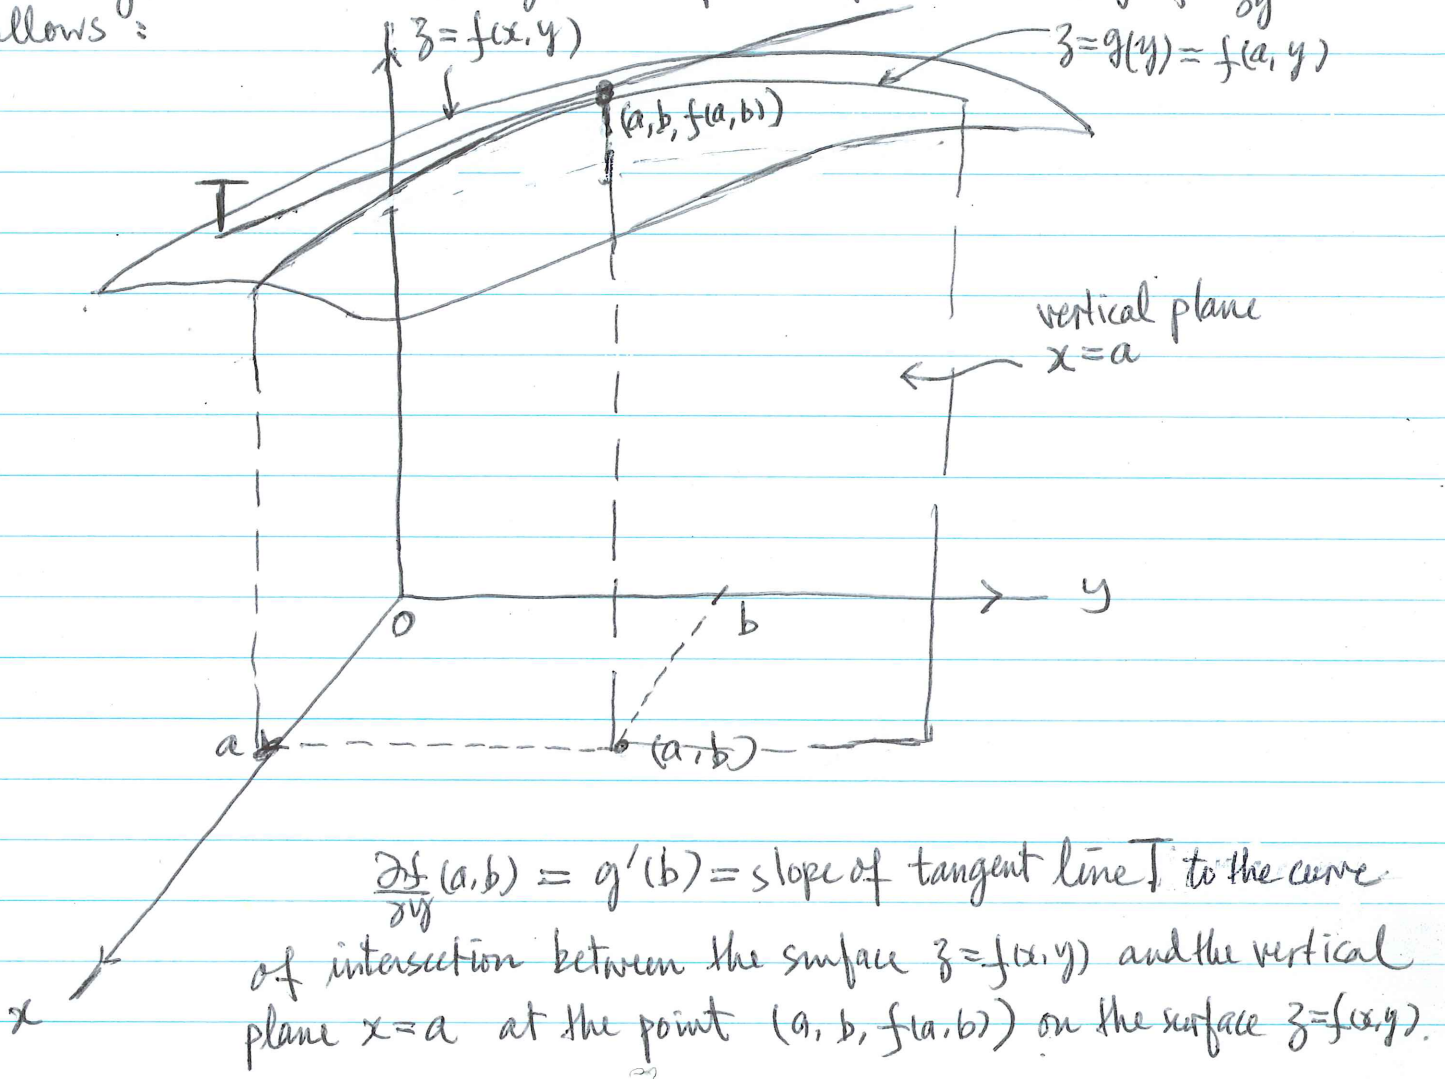 llows:
z = f(x, y)
z = g(y) = f(a, y)
(a, b, f(a, b))
T
vertical plane
x = a
y
0
b
a
(a, b)
∂f/∂y (a, b) = g'(b) = slope of tangent line T to the curve
of intersection between the surface z = f(x, y) and the vertical
plane x = a at the point (a, b, f(a, b)) on the surface z = f(x, y).
x